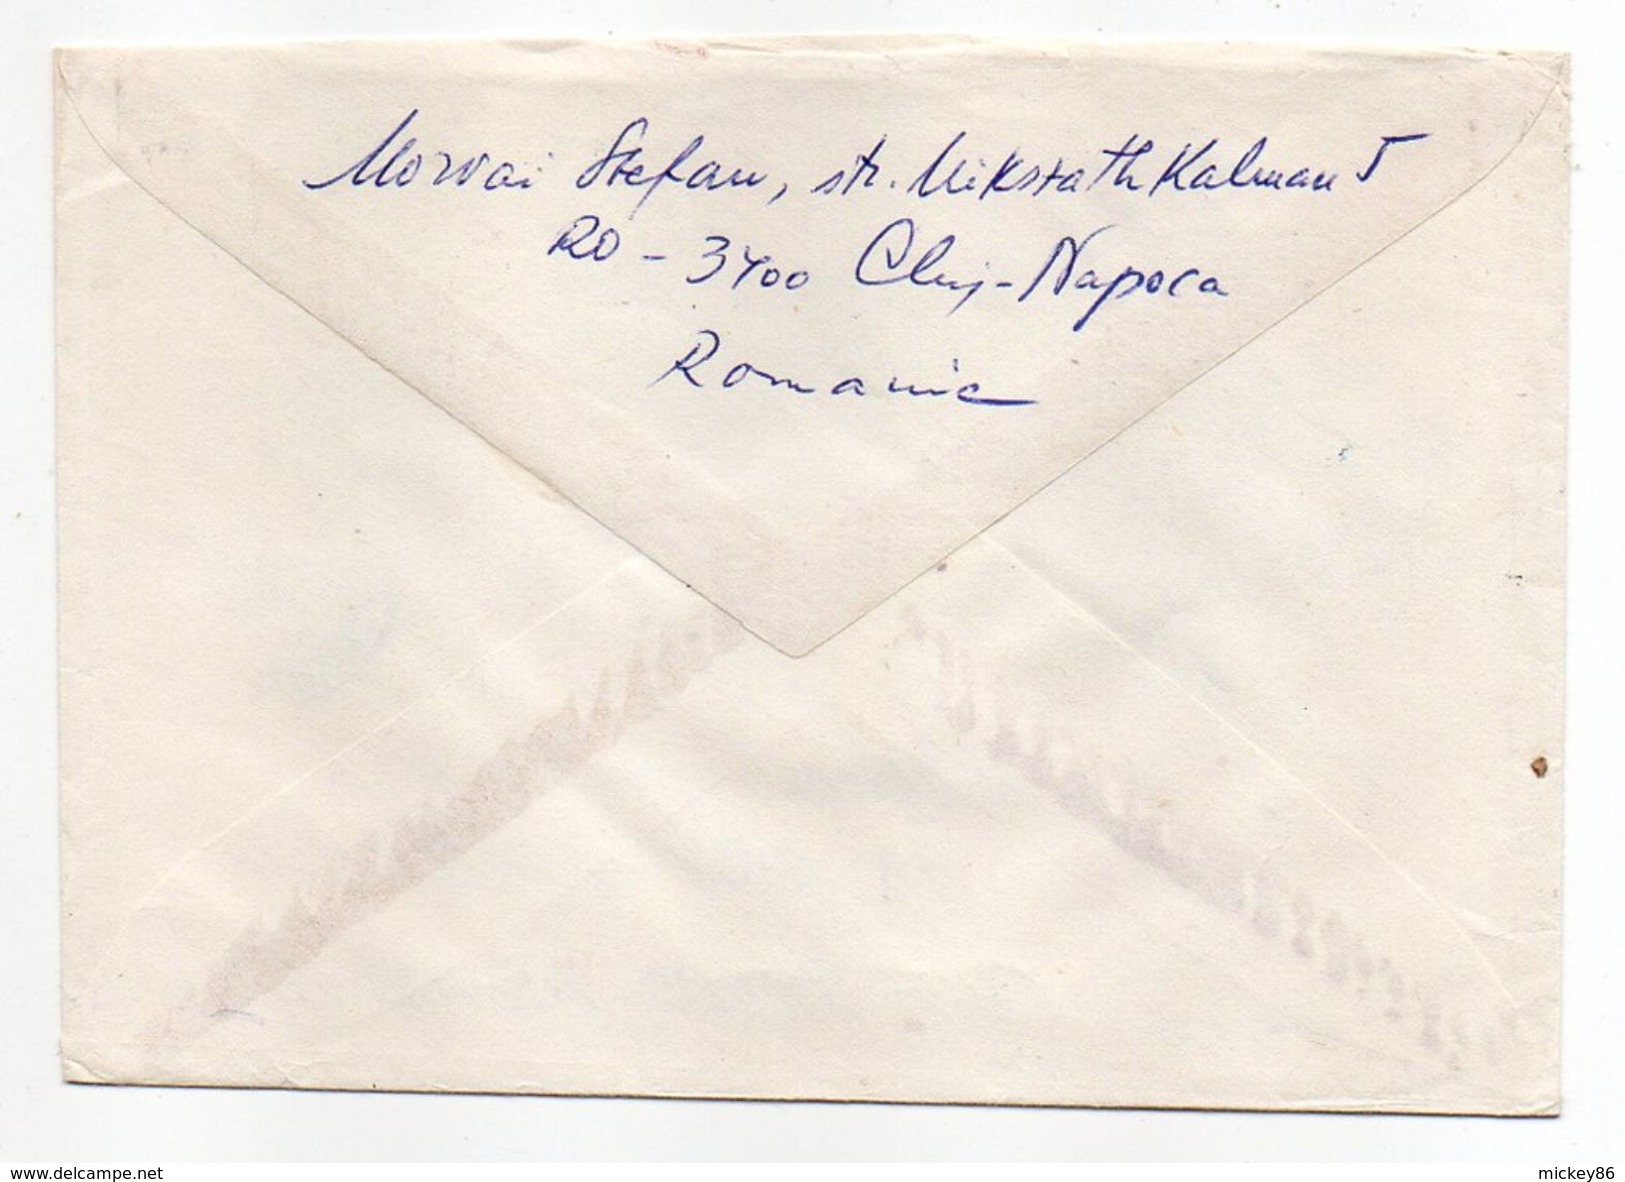 Morvai Stefan, str. Mikszath Kalman 5
RO - 3400 Cluj-Napoca
Romanie
www.delcampe.net
mickey86